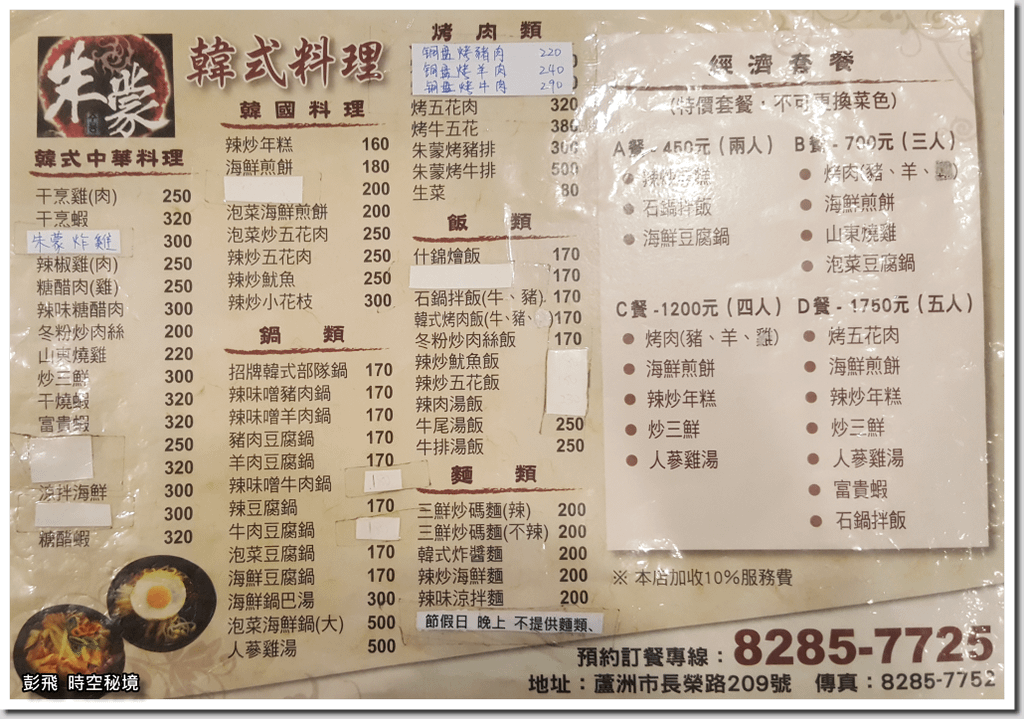 朱蒙
韓式料理
韓式中華料理
干烹雞(肉) 250
干烹蝦 320
朱蒙 炸雞 300
辣椒雞(肉) 250
糖醋肉(雞) 250
辣味糖醋肉 300
冬粉炒肉絲 200
山東燒雞 220
炒三鮮 300
干燒蝦 320
富貴蝦 320
250
320
涼拌海鮮 300
300
糖醋蝦 320
韓國料理
辣炒年糕 160
海鮮煎餅 180
200
泡菜海鮮煎餅 200
泡菜炒五花肉 250
辣炒五花肉 250
辣炒魷魚 250
辣炒小花枝 300
鍋 類
招牌韓式部隊鍋 170
辣味噌豬肉鍋 170
辣味噌羊肉鍋 170
豬肉豆腐鍋 170
羊肉豆腐鍋 170
辣味噌牛肉鍋
辣豆腐鍋 170
牛肉豆腐鍋
泡菜豆腐鍋 170
海鮮豆腐鍋 170
海鮮鍋巴湯 300
泡菜海鮮鍋(大) 500
人蔘雞湯 500
烤肉類
銅盘烤豬肉 220
銅盘烤羊肉 240
銅盘烤牛肉 290
烤五花肉 320
烤牛五花 380
朱蒙烤豬排 300
朱蒙烤牛排 500
生菜 80
飯 類
什錦燴飯 170
170
石鍋拌飯(牛、豬) 170
韓式烤肉飯(牛、豬、 )170
冬粉炒肉絲飯 170
辣炒魷魚飯
辣炒五花飯
辣肉湯飯
牛尾湯飯 250
牛排湯飯 250
麵 類
三鮮炒碼麵(辣) 200
三鮮炒碼麵(不辣) 200
韓式炸醬麵 200
辣炒海鮮麵 200
辣味涼拌麵 200
節假日 晚上 不提供麵類、
經濟套餐
(特價套餐，不可更換菜色)
A餐 - 450元（兩人）
● 辣炒年糕
● 石鍋拌飯
● 海鮮豆腐鍋
B餐 - 700元（三人）
● 烤肉(豬、羊、 )
● 海鮮煎餅
● 山東燒雞
● 泡菜豆腐鍋
C餐 -1200元（四人）
● 烤肉(豬、羊、雞)
● 海鮮煎餅
● 辣炒年糕
● 炒三鮮
● 人蔘雞湯
D餐 - 1750元（五人）
● 烤五花肉
● 海鮮煎餅
● 辣炒年糕
● 炒三鮮
● 人蔘雞湯
● 富貴蝦
● 石鍋拌飯
※ 本店加收10%服務費
預約訂餐專線：8285-7725
地址：蘆洲市長榮路209號 傳真：8285-7752
彭飛 時空秘境